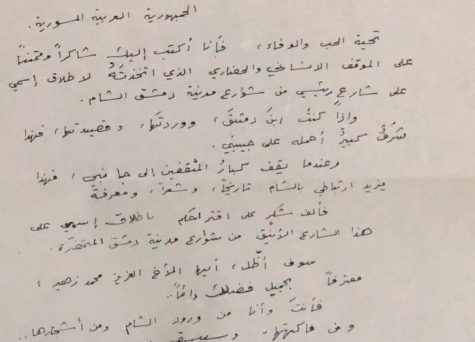 الجمهورية العربية السورية.
تحية الحب والوفاء، فأنا أكتب إليك شاكراً وممتناً
على الموقف الإنساني والحضاري الذي اتخذتَهُ لاطلاق إسمي
على شارع رئيسي من شوارع مدينة دمشق الشام.
وإذا كنتُ ابنَ دمشقَ، ووردتَها، وقصيدتها، فهذا
شرفٌ كبيرٌ أحمله على جبيني.
وعندما يقف كبارُ المثقفين إلى جانبي، فهذا
يزيد ارتباطي بالشام تاريخاً، وشعراً، ومعرفةً
فألف شكر على اقتراحكم باطلاق إسمي على
هذا الشارع الأنيق من شوارع مدينة دمشق المتحضرة.
سوف أظلّ، أيها الأخ العزيز محمد زهير،
معترفاً بجميل فضلك دائماً..
فأنتَ وأنا من ورود الشام ومن أشجارها..
ومن فاكهتها،